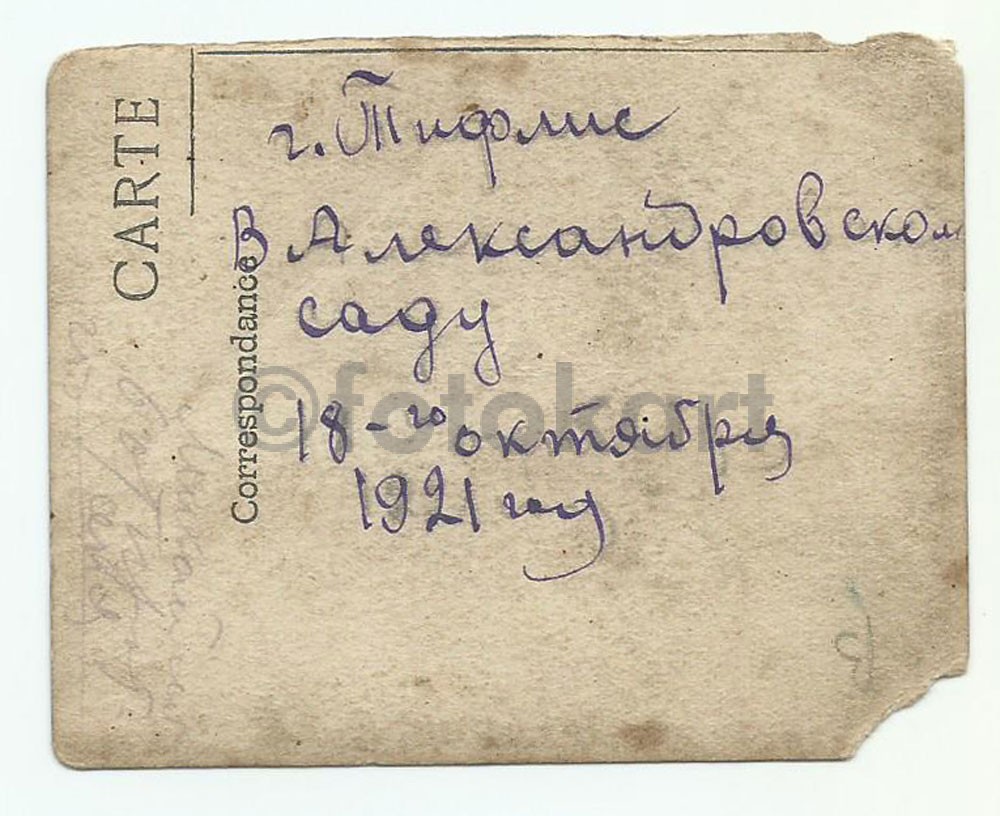 CARTE
Correspondance
г. Тифлис
В Александровском
саду
18-го октября
1921 года
©fotokart